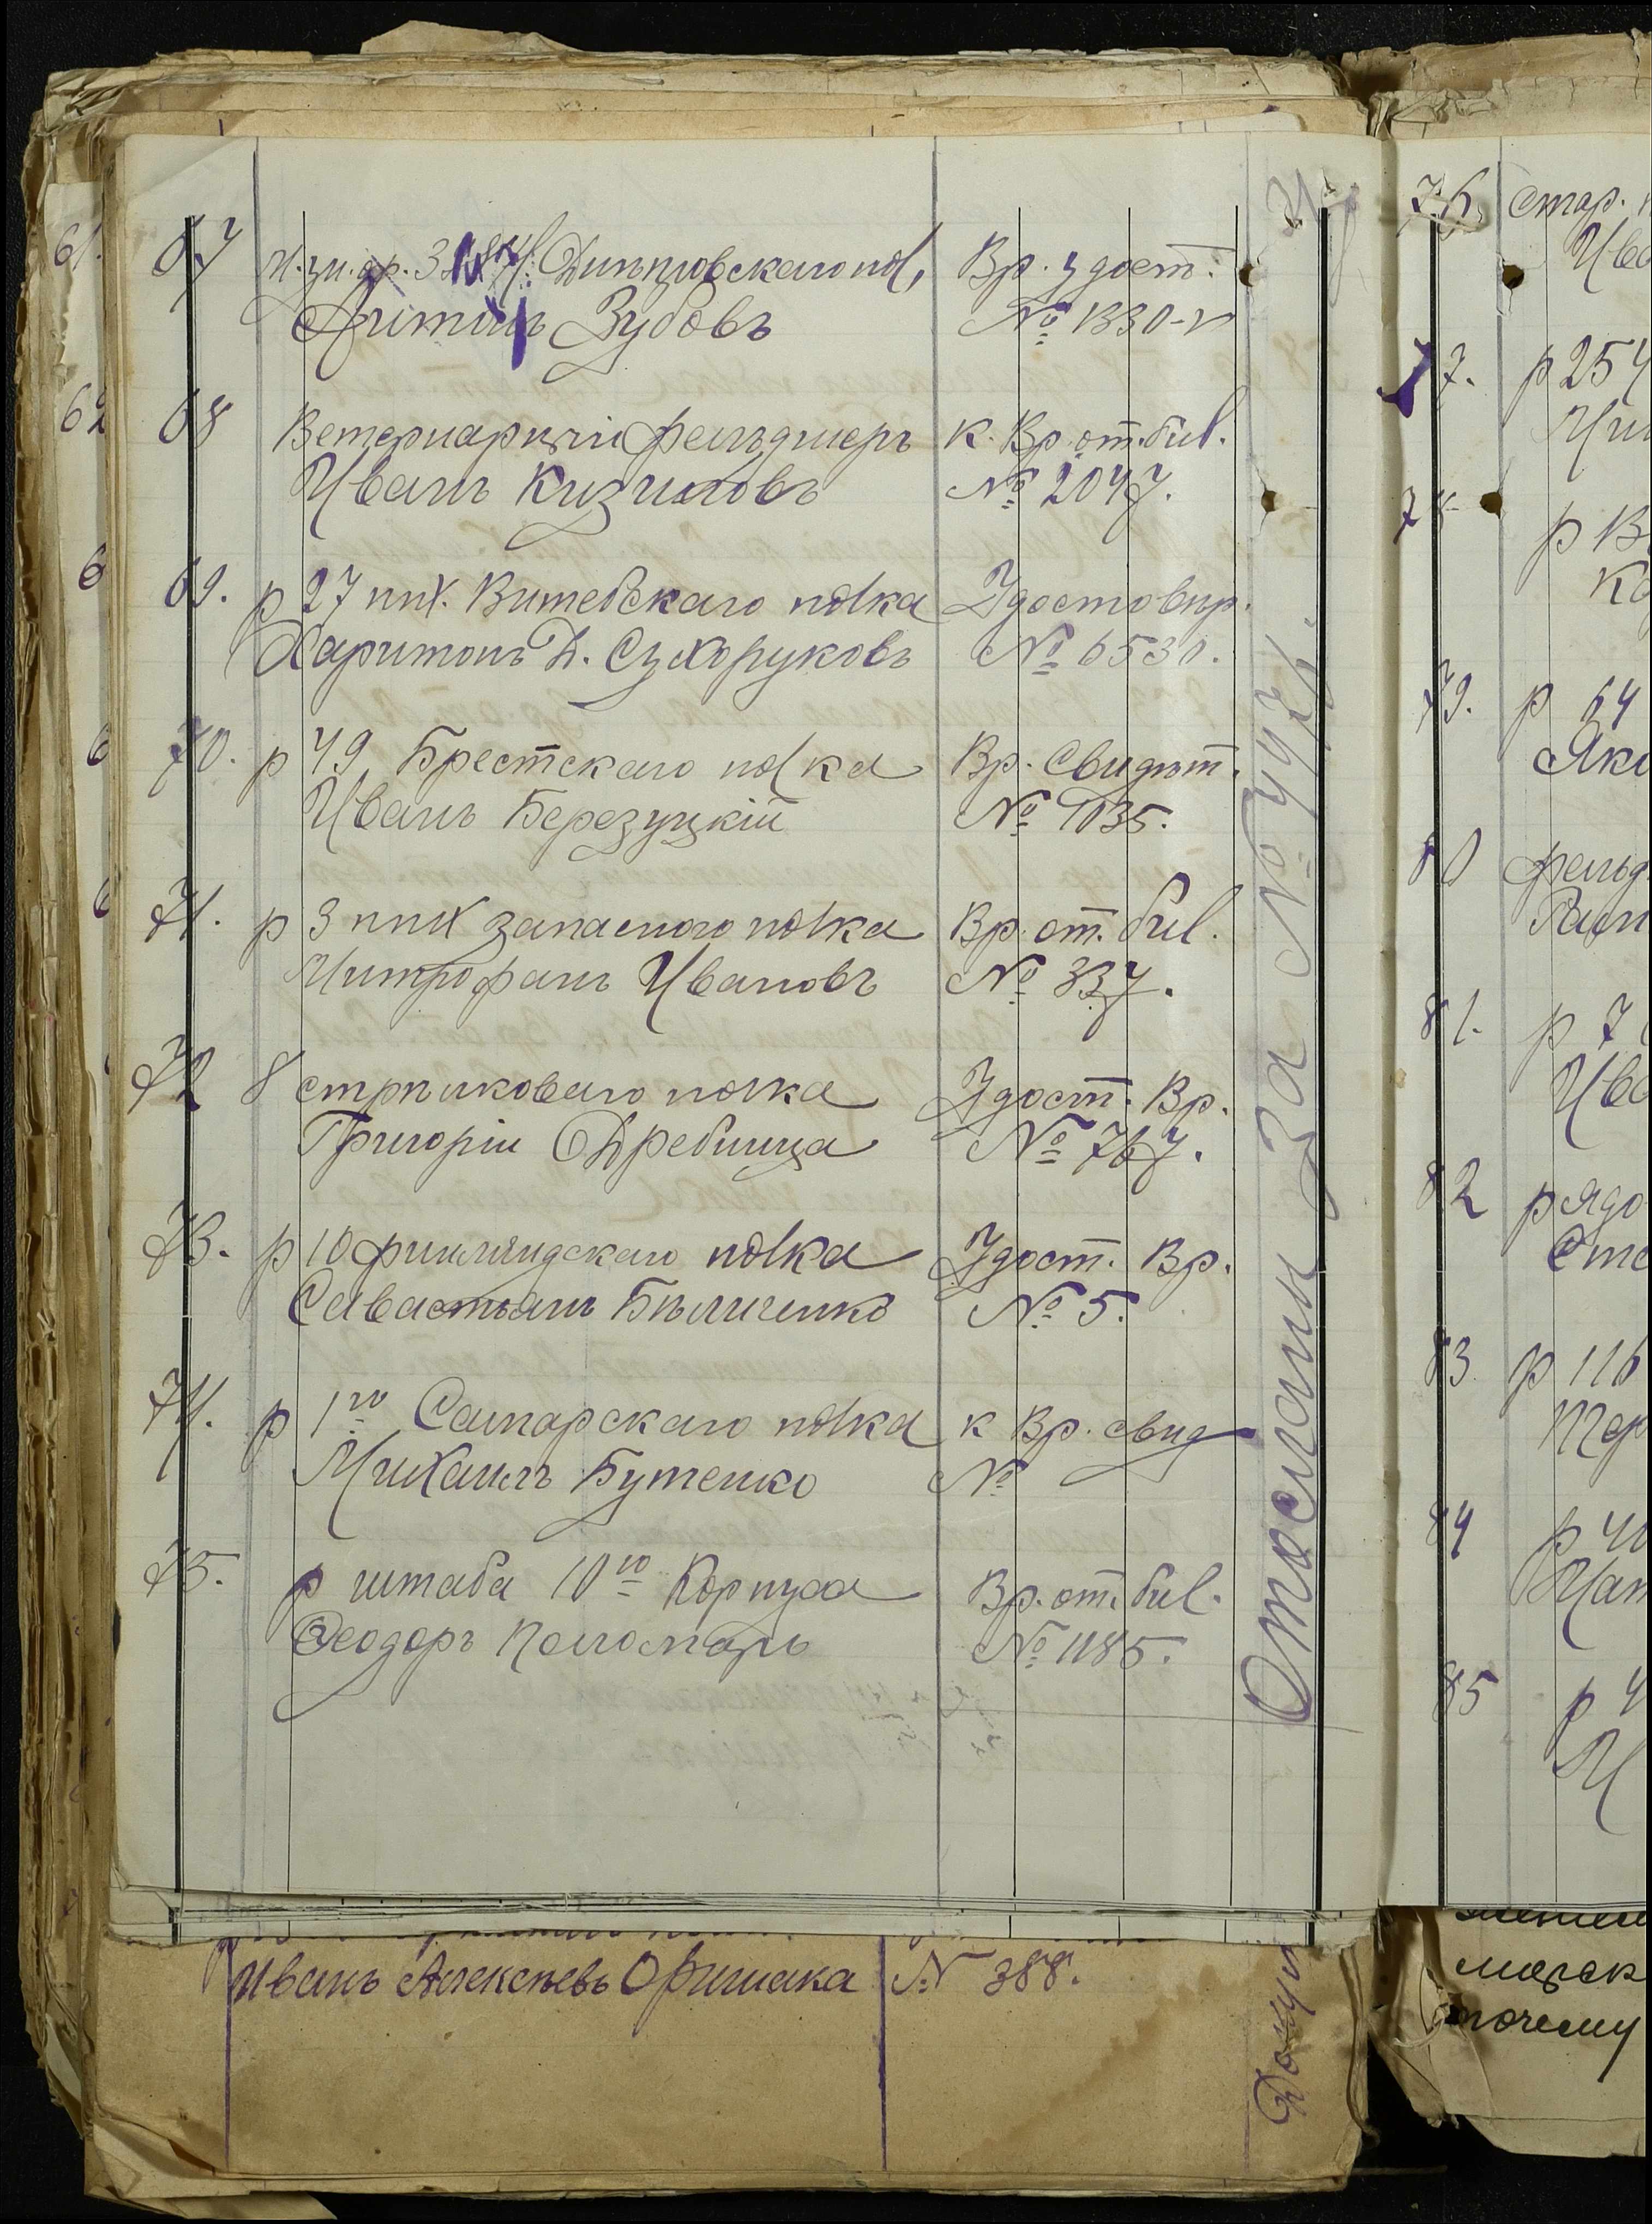 67 М. ун. оф. 3 Днѣпровскаго пол,
Антонъ Зубовъ
Вр. удост.
№ 1330-V
68 Ветеринарный фельдшеръ
Иванъ Кизиловъ
К. Вр. от. бил.
№ 2047.
69. р 27 пѣх. Витебскаго полка
Харитонъ Д. Сухоруковъ
Удостовѣр.
№ 6530.
70. р 49 Брестскаго полка
Иванъ Березуцкій
Вр. Свидѣт.
№ 1035.
71. р 3 пѣх запасного полка
Митрофанъ Ивановъ
Вр. от. бил.
№ 337.
72 8 стрѣлковаго полка
Григорій
Удост. Вр.
№ 767.
73. р 10 финляндскаго полка
Савастьянъ Бѣличенко
Удост. Вр.
№ 5.
74. р 1го Самарскаго полка
Михаилъ Бутенко
к Вр. свид
№
75. р штаба 10го Корпуса
Феодоръ Поломарь
Вр. от. бил.
№ 1185.
Отосланы за №
Иванъ Алексѣевъ Оришака
№ 388.
76 стар.
77. р 254
78 р
79. р 64
80
81. р 7
82
83 р 116
84 р
85 р
почему